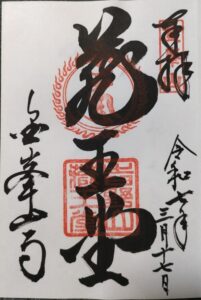 奉拝
令和七年
三月十七日
蔵王堂
金峯山寺